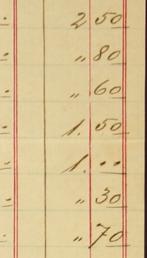 2 50
" 80
" 60
1. 50
1. ..
" 30
" 70